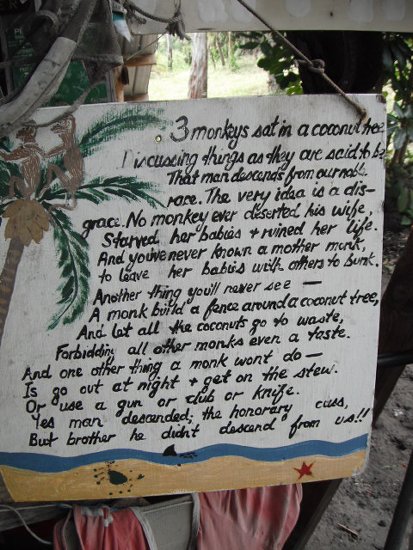 3 monkeys sat in a coconut tree
Discussing things as they are said to be
That man descends from our noble
race. The very idea is a dis-
grace. No monkey ever deserted his wife,
Starved her babies & ruined her life.
And you've never known a mother munk,
to leave her babies with others to bunk.
Another thing you'll never see —
A monk build a fence around a coconut tree,
And let all the coconuts go to waste,
Forbidding all other monks even a taste.
And one other thing a monk wont do —
Is go out at night & get on the stew.
Or use a gun or club or knife.
Yes man descended; the honorary cuss,
But brother he didnt descend from us!!